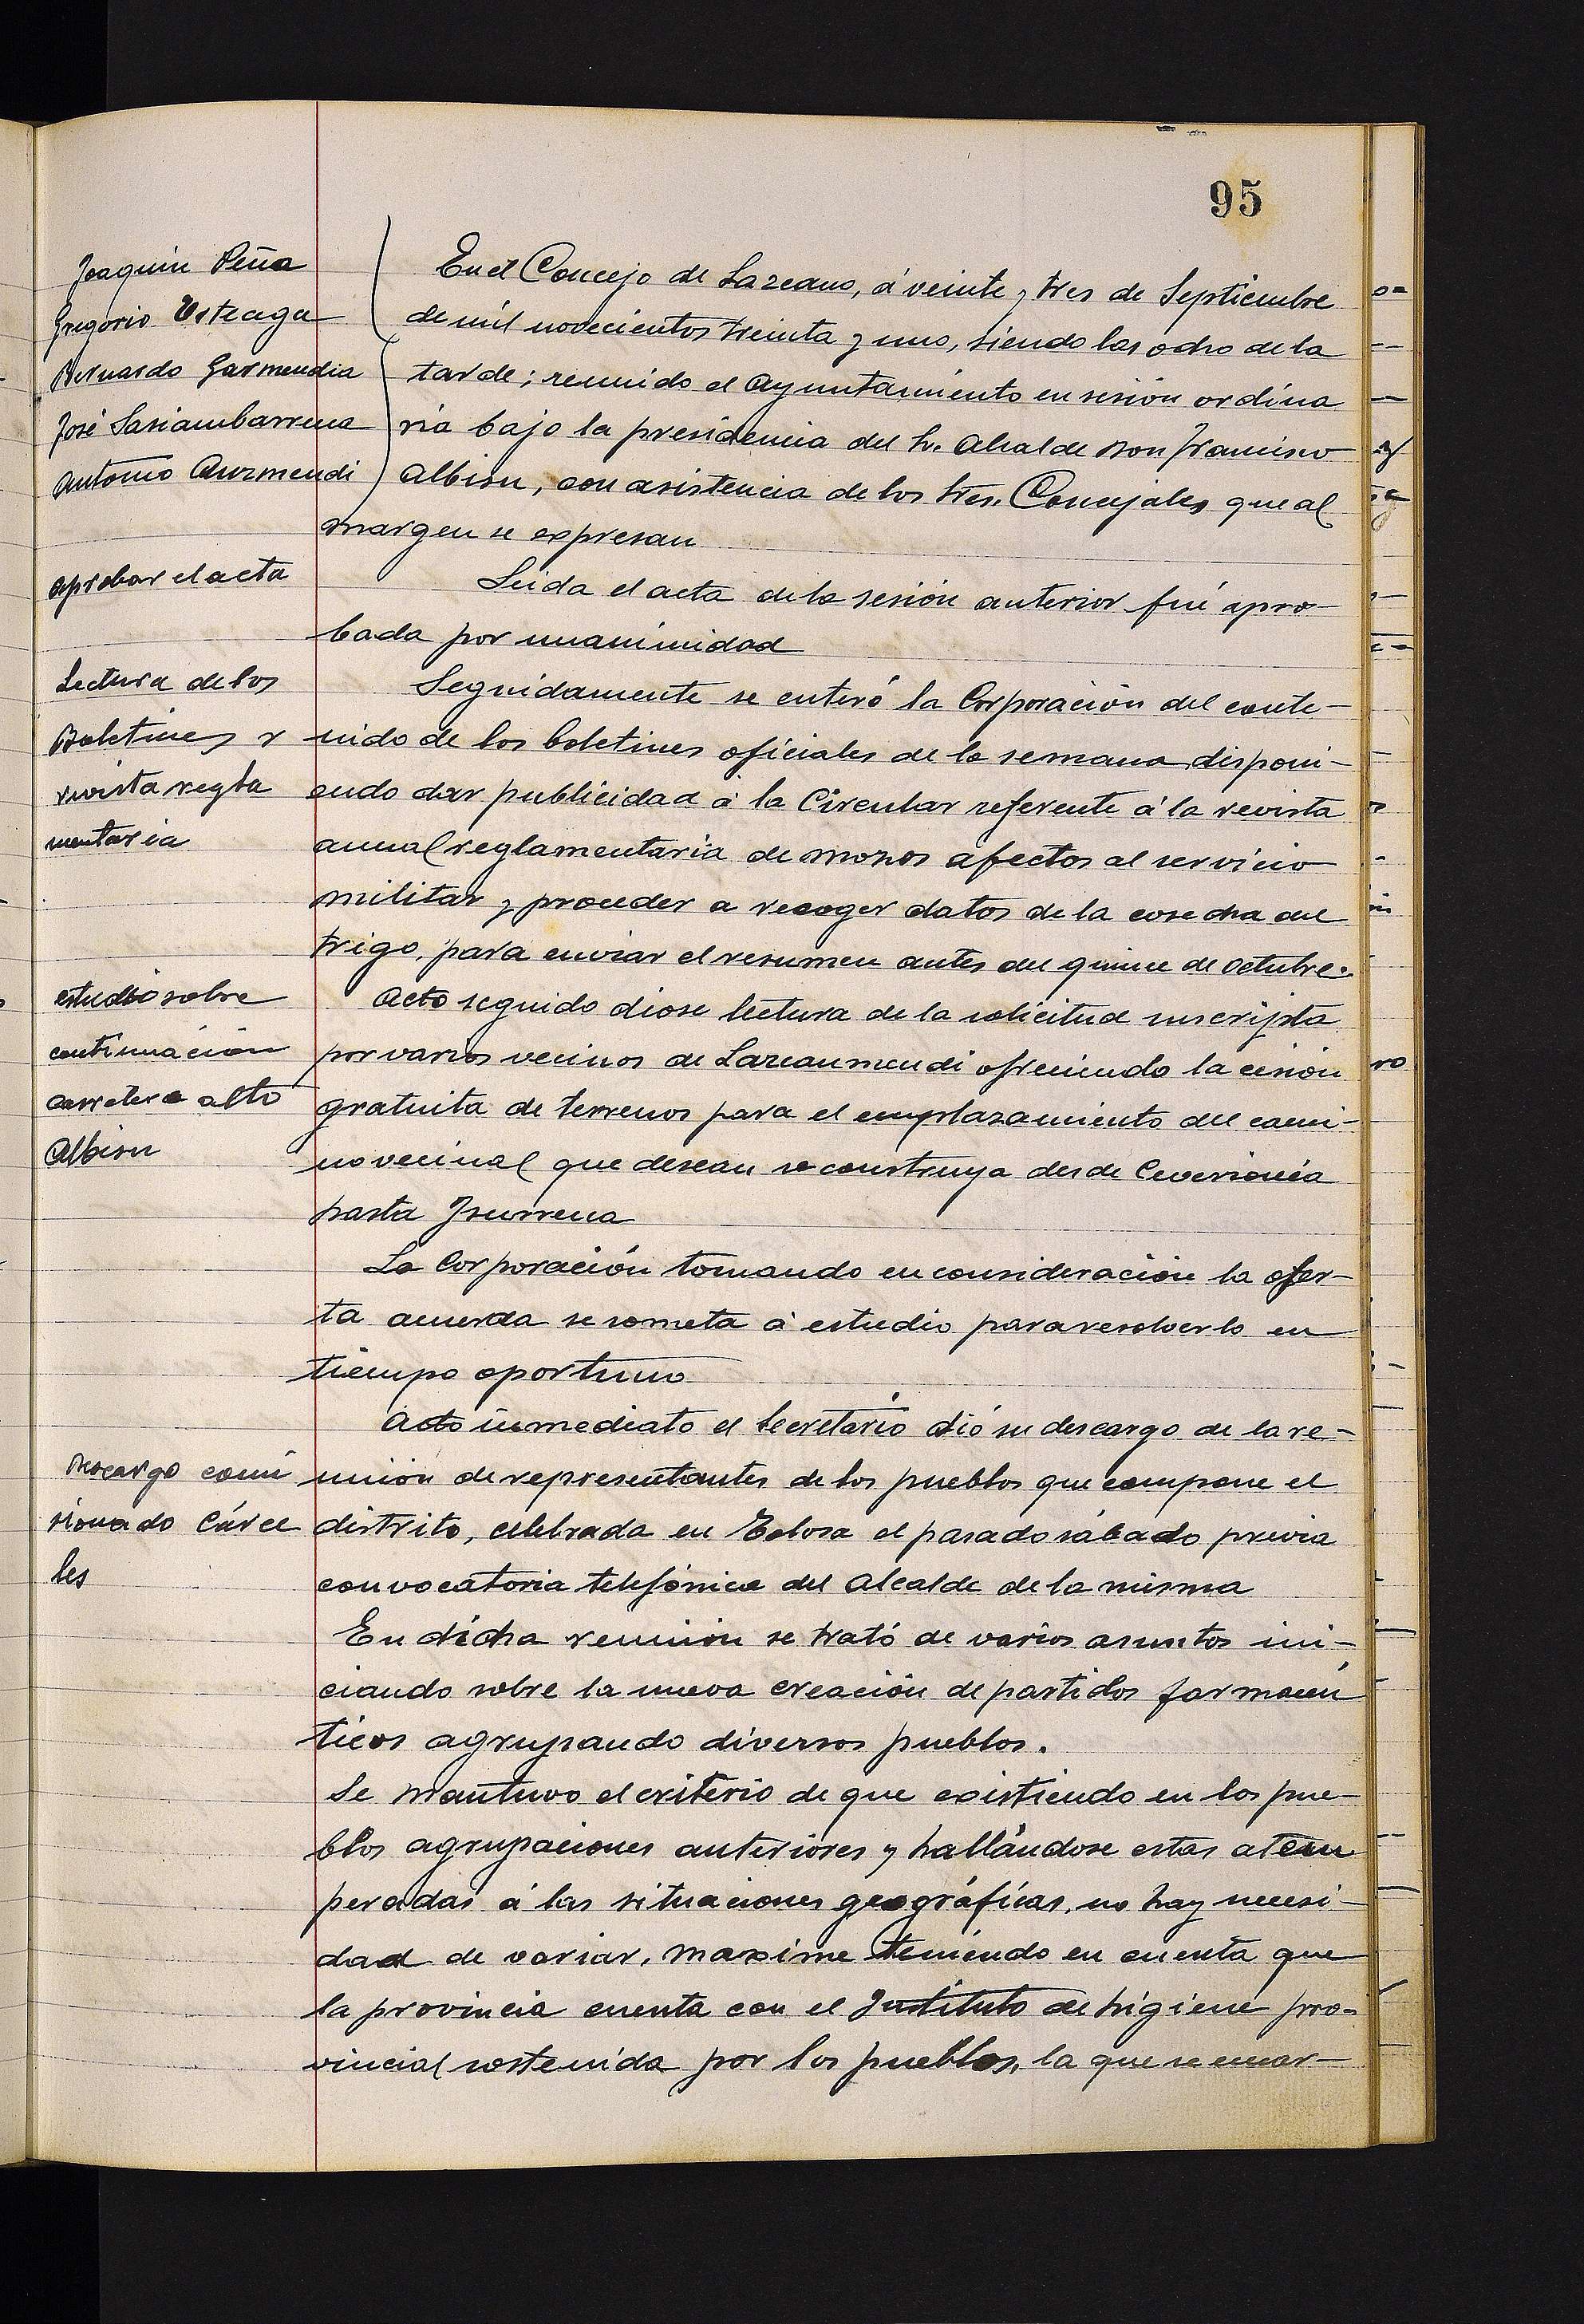 95
Joaquin Peña
Gregorio Usteaga
Bernardo Garmendia
José Sasiambarrena
Antonio Auzmendi
En el Concejo de Lazcano, á veinte y tres de Septiembre
de mil novecientos treinta y uno, siendo las ocho de la
tarde; reunido el Ayuntamiento en sesión ordina
ria bajo la presidencia del Sr. Alcalde Don Francisco
Albisu, con asistencia de los Sres. Concejales que al
margen se expresan
aprobar el acta
Leida el acta de la sesión anterior fué apro-
bada por unanimidad
Lectura de los
Boletines y
revista regla
mentaria
Seguidamente se enteró la Corporación del conte-
nido de los boletines oficiales de la semana disponi-
endo dar publicidad á la Circular referente á la revista
anual reglamentaria de mozos afectos al servicio
militar y proceder a recoger datos de la cosecha del
trigo, para enviar el resumen antes del quince de Octubre.
estudio sobre
continuación
carretera alto
Albisu
Acto seguido diose lectura de la solicitud suscripta
por varios vecinos de Lazcaumendi ofreciendo la cesión
gratuita de terrenos para el emplazamiento del cami-
no vecinal que desean se construya desde
hasta Isurrena
La Corporación tomando en consideración la ofer-
ta acuerda se someta á estudio para resolverlo en
tiempo oportuno
Descargo comi
sionado Cárce
les
Acto inmediato el Secretario dió su descargo de la re-
unión de representantes de los pueblos que compone el
distrito, celebrada en Tolosa el pasado sábado previa
convocatoria telefónica del Alcalde de la misma
En dicha reunión se trató de varios asuntos ini-
ciando sobre la nueva creación de partidos farmaceu
ticos agrupando diversos pueblos.
Se mantuvo el criterio de que existiendo en los pue-
blos agrupaciones anteriores y hallándose estas atem
peradas á las situaciones geográficas, no hay necesi-
dad de variar, maxime teniendo en cuenta que
la provincia cuenta con el Instituto de higiene pro-
vincial sostenida por los pueblos, la que se encar-